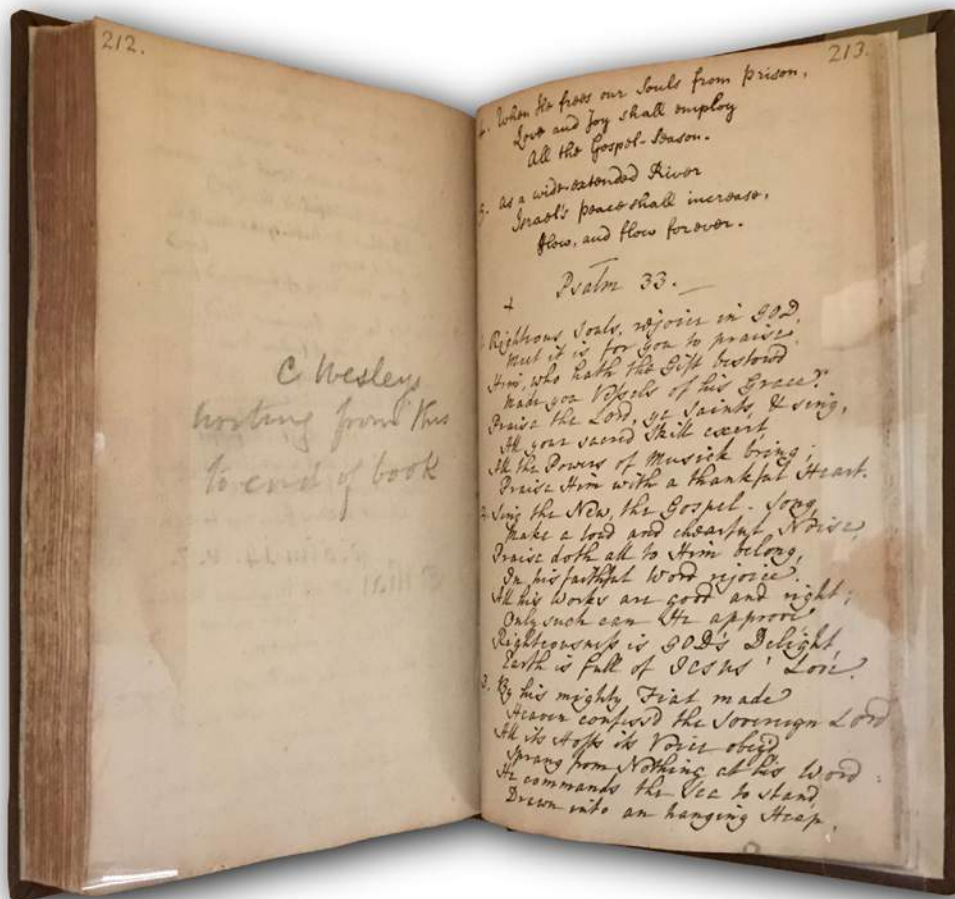 212.
C Wesleys
writing from this
to end of book
213.
4. When He frees our Souls from prison,
Love and Joy shall employ
All the Gospel-Season.
5. As a wide-extended River
Israel's peace shall increase,
Flow, and flow forever.
Psalm 33.
1. Righteous Souls, rejoice in GOD,
Meet it is for you to praise
Him, who hath the Gift bestowd
Made you Vessels of his Grace.
Praise the Lord, ye saints, & sing,
All your sacred Skill exert,
All the Powers of Musick bring;
Praise Him with a thankful Heart.
2. Sing the New, the Gospel-Song,
Make a loud and chearful Noise,
Praise doth all to Him belong,
In his faithful Word rejoice.
All his Works are good and right;
Only such can He approve,
Righteousness is GOD's Delight,
Earth is full of Jesus' Love.
3. By his mighty Fiat made
Heaven confess'd the Sovereign Lord
All its Hosts its Voice obey'd,
Sprang from Nothing at his Word:
He commands the Sea to stand
Drawn into an hanging Heap,